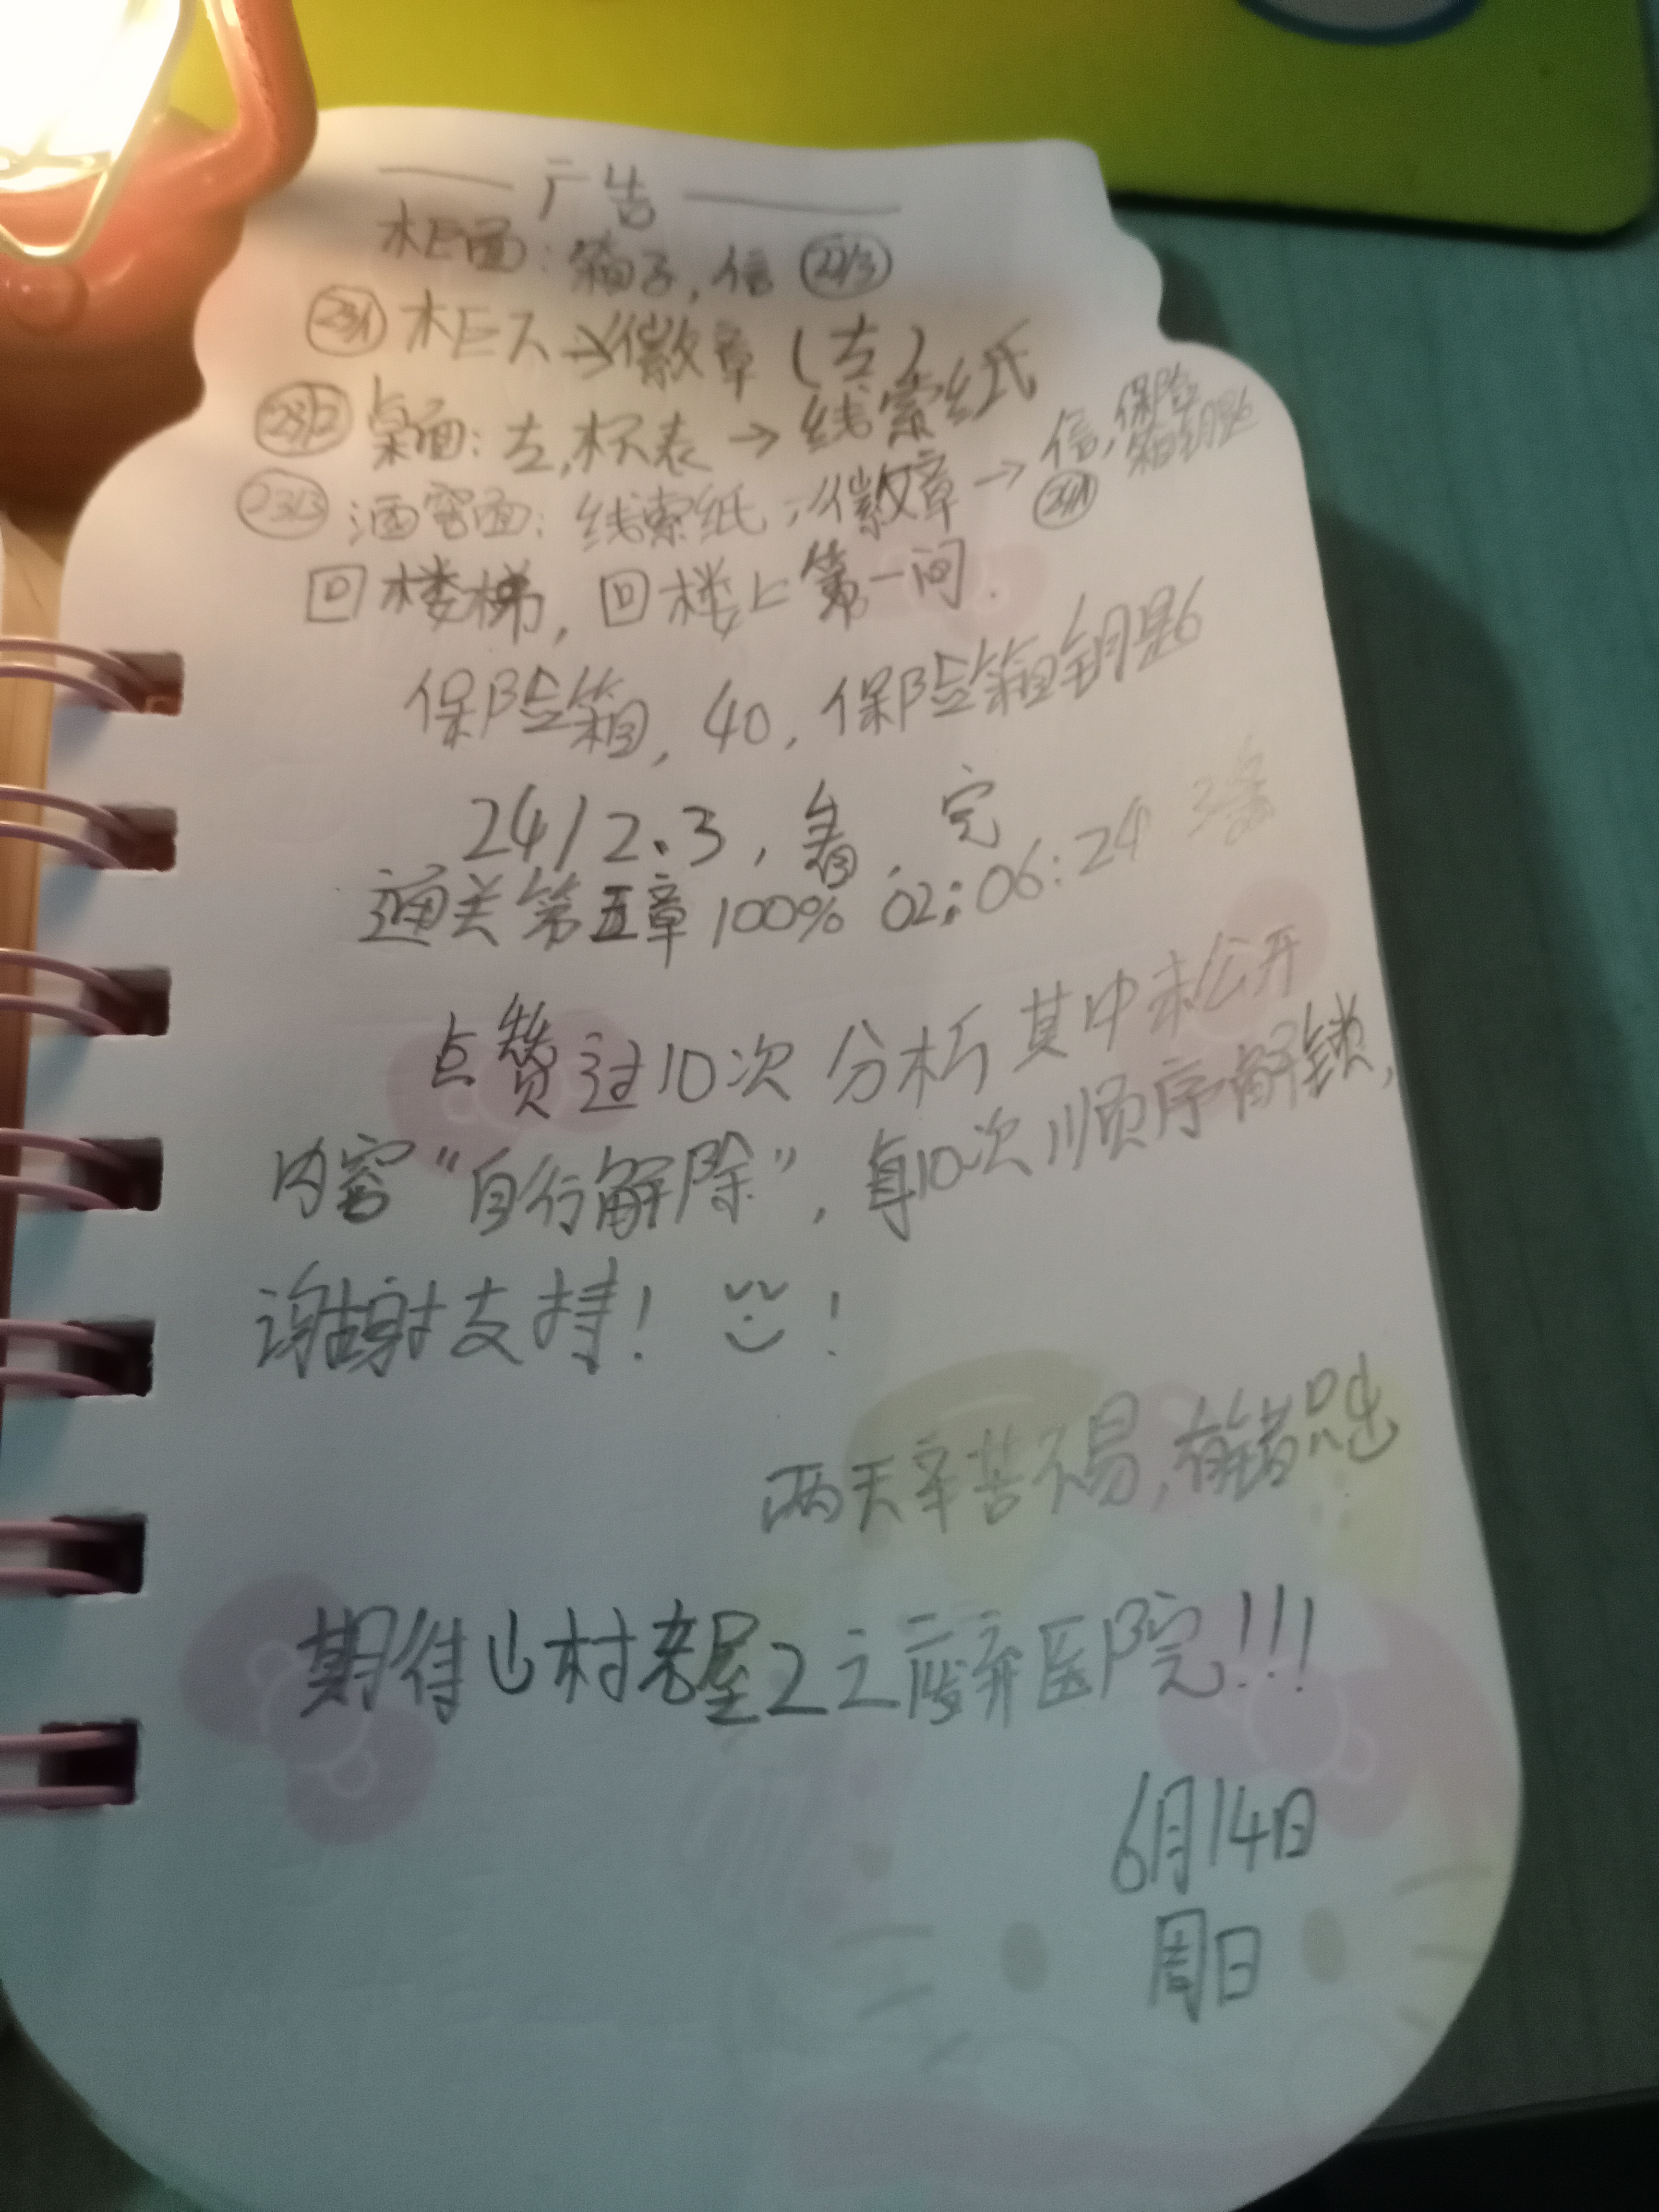 广告
柜面：箱子，信 22/3
23/1 柜下→徽章（左）
23/2 桌面：左，杯表→线索纸
23/3 酒窖面：线索纸，徽章→信，保险箱钥匙 24/1
回楼梯，回楼上第一间.
保险箱，40，保险箱钥匙
24/2、3，看，完
通关第五章100% 02:06:24 3条
点赞过10次 分析 其中未公开
内容“自行解除”，每10次顺序解锁，
谢谢支持！ ！
两天辛苦不易，有错
期待山村老屋2之废弃医院!!!
6月14日
周日